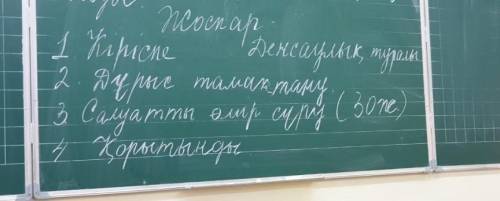 Жоспар.
1 Кіріспе Денсаулық туралы
2. Дұрыс тамақтану.
3 Салуатты өмір сүру (ЗОЖ)
4 Қорытынды